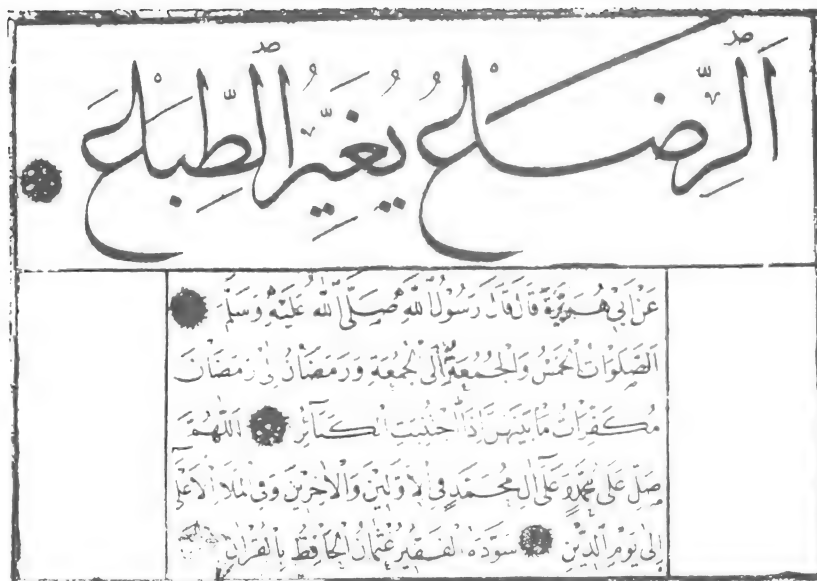 اَلرِّضَاعُ يُغَيِّرُ الطِّبَاعَ
عَنْ اَبِي هُرَيْرَةَ قَالَ قَالَ رَسُولُ اللّٰهِ صَلَّى اللّٰهُ عَلَيْهِ وَسَلَّمَ
اَلصَّلَوَاتُ الْخَمْسُ وَالْجُمُعَةُ اِلَى الْجُمُعَةِ وَرَمَضَانُ اِلٰى رَمَضَانَ
مُكَفِّرَاتٌ مَا بَيْنَهُنَّ اِذَا اجْتُنِبَتِ الْكَبَآئِرُ اَللّٰهُمَّ
صَلِّ عَلٰى مُحَمَّدٍ وَعَلٰى اٰلِ مُحَمَّدٍ فِي الْاَوَّلِينَ وَالْاٰخِرِينَ وَفِي الْمَلَاِ الْاَعْلٰى
اِلٰى يَوْمِ الدِّينِ سَوَّدَهُ الْفَقِيرُ عُثْمَانُ الْحَافِظُ بِالْقُرْاٰنِ